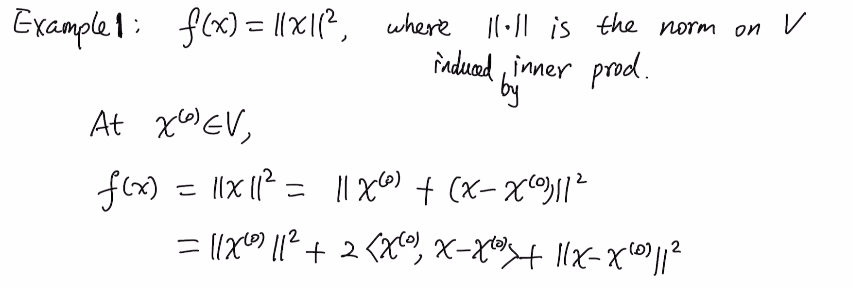 Example 1: f(x) = ||x||², where ||·|| is the norm on V
induced by inner prod.
At x⁽⁰⁾∈V,
f(x) = ||x||² = ||x⁽⁰⁾ + (x-x⁽⁰⁾)||²
= ||x⁽⁰⁾||² + 2<x⁽⁰⁾, x-x⁽⁰⁾> + ||x-x⁽⁰⁾||²